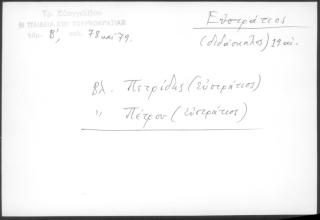 Τρ. Εὐαγγελίδου
Η ΠΑΙΔΕΙΑ ΕΠΙ ΤΟΥΡΚΟΚΡΑΤΙΑΣ
τόμ. Β', σελ. 78 και 79.
Εὐστράτιος
(διδάσκαλος) 19 αἰ.
βλ. Πετρίδης (εὐστράτιος)
" Πέτρου (εὐστράτιος)